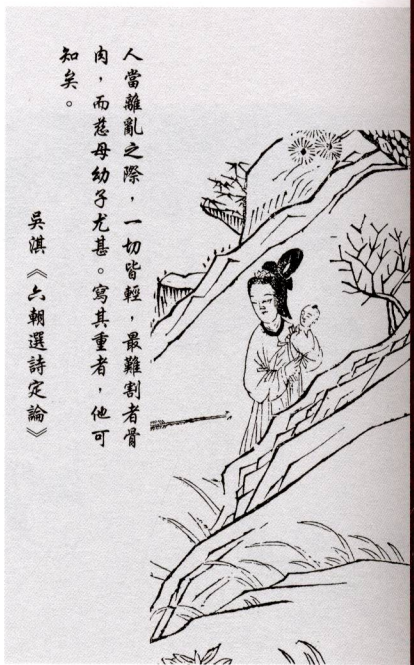 人當離亂之際，一切皆輕，最難割者骨
肉，而慈母幼子尤甚。寫其重者，他可
知矣。
吳淇《六朝選詩定論》